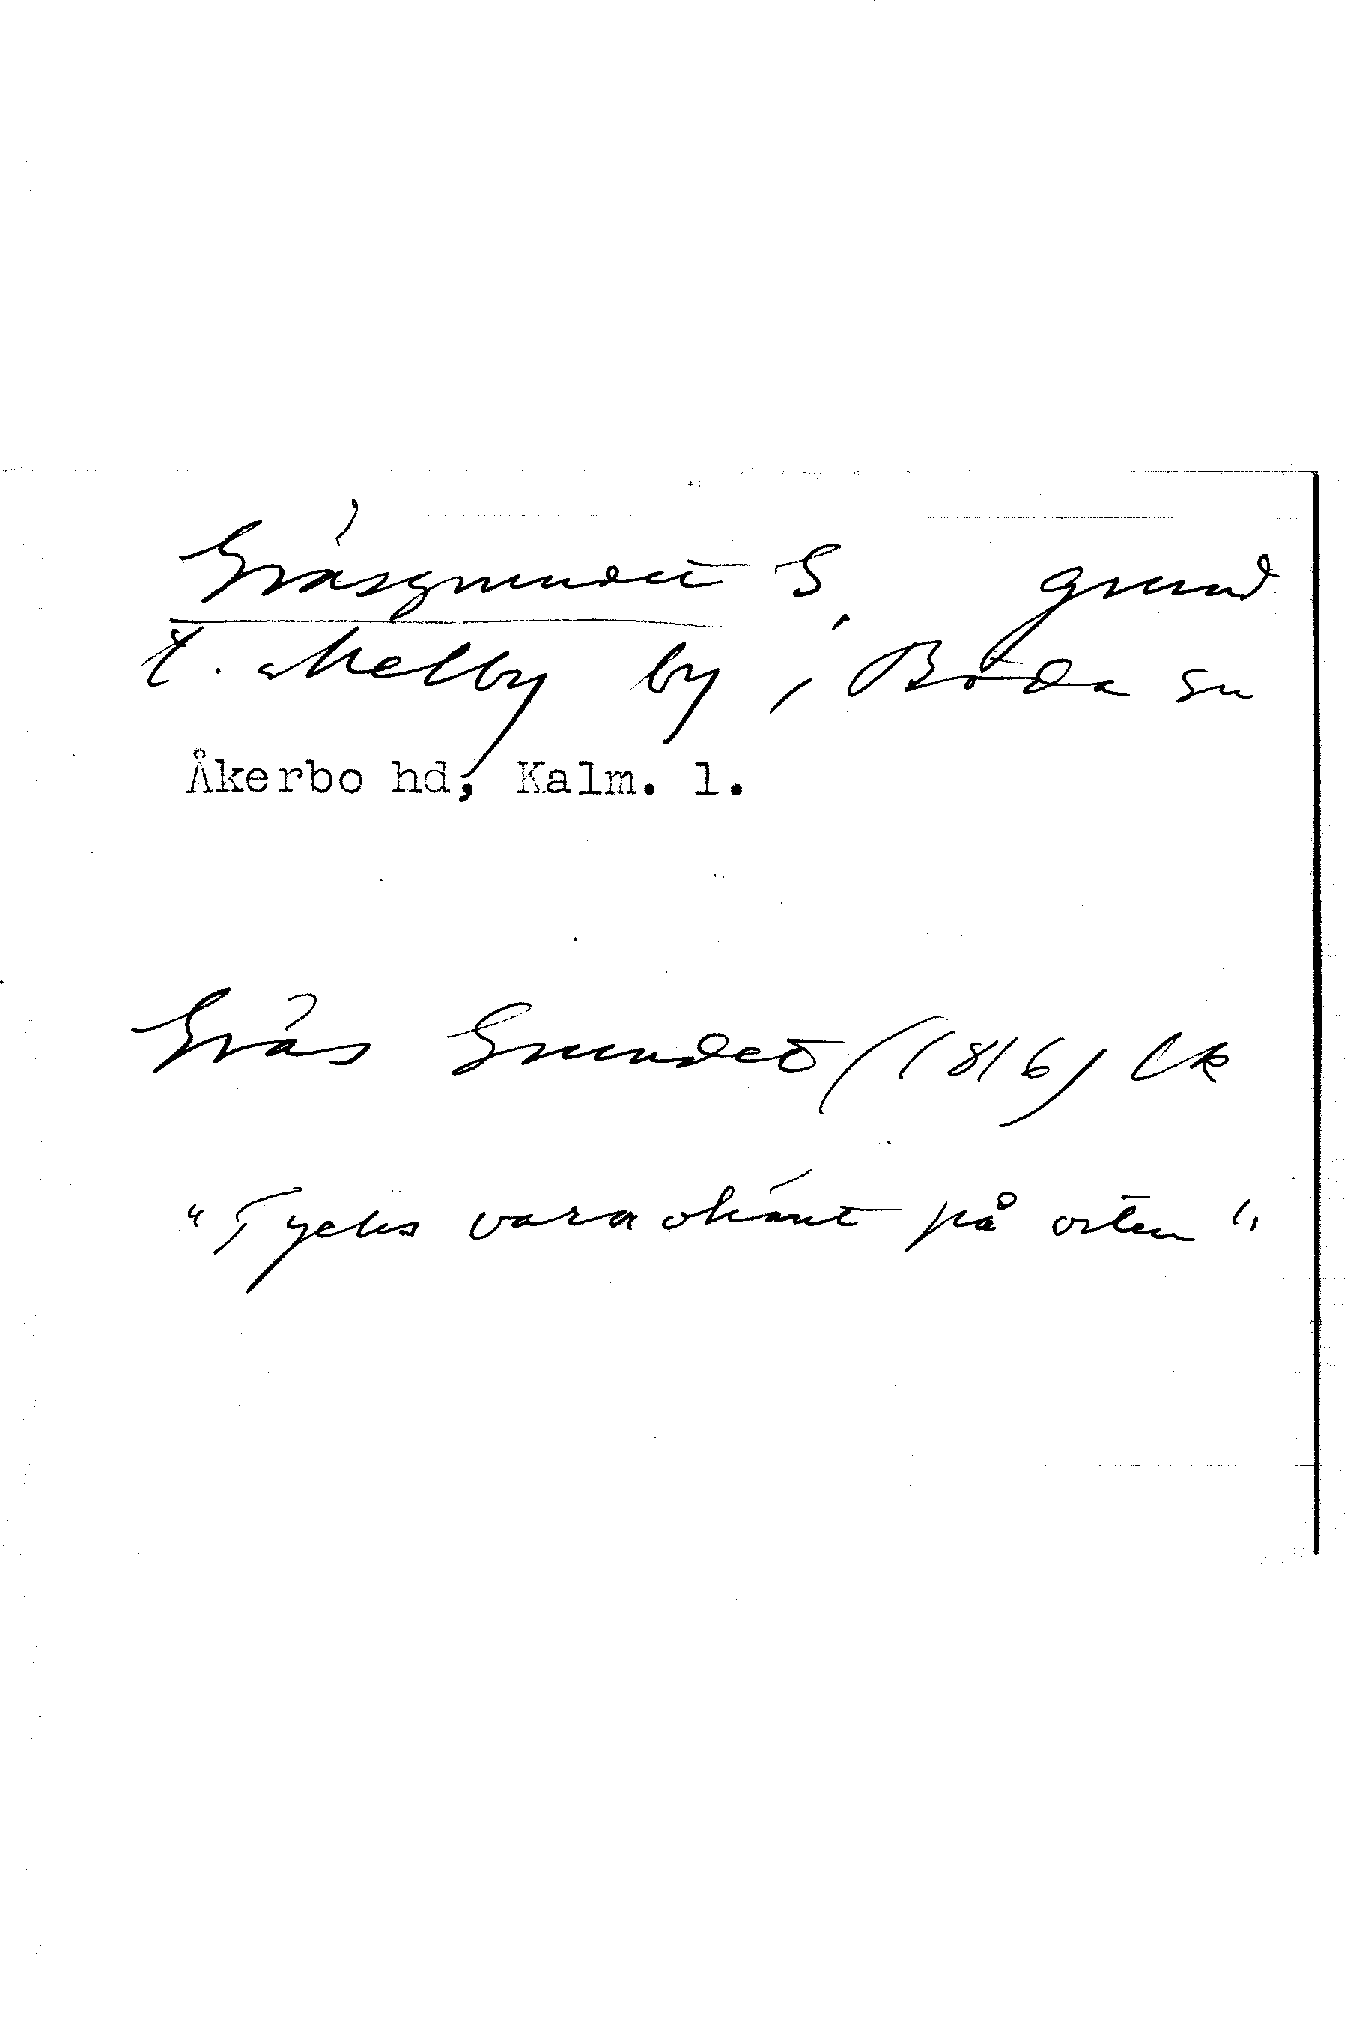 Gräsgrundet S. grund
t. Mellby by, Böda sn
Åkerbo hd, Kalm. l.
Gräs Grundet (1816) Lk
"Tycks vara okänt på orten"